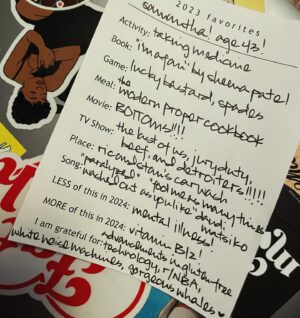 2023 favorites
samantha! age 43!
Activity: taking medicine
Book: "i'm a fan" by sheena patel
Game: lucky bastard, spades
Meal: the modern proper cookbook
Movie: BOTTOMS!!!!
TV Show: the last of us, jury duty,
beef, and detroiters!!!!!
Place: rico nastan's car wash
Song: "paralyzed"
LESS of this in 2024: mental illness!
MORE of this in 2024: vitamin B12!
advancements in gluten-free
I am grateful for: technology, r/NBA,
white noise machines, gorgeous whales